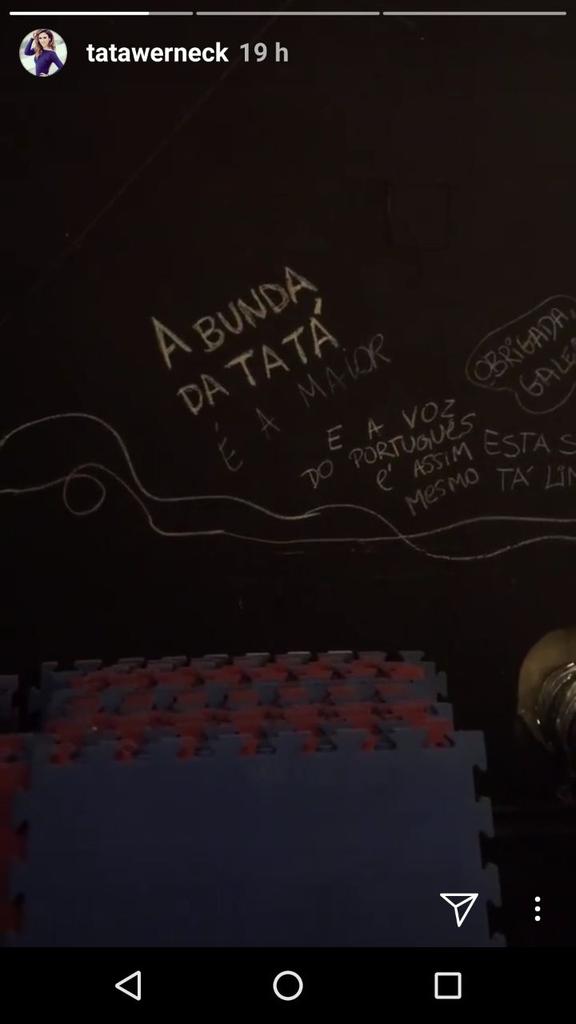 tatawerneck 19 h
A BUNDA
DA TATÁ
É A MAIOR
OBRIGADA,
GALE
E A VOZ
DO PORTUGUÊS
É ASSIM
MESMO
ESTA S
TÁ LIN